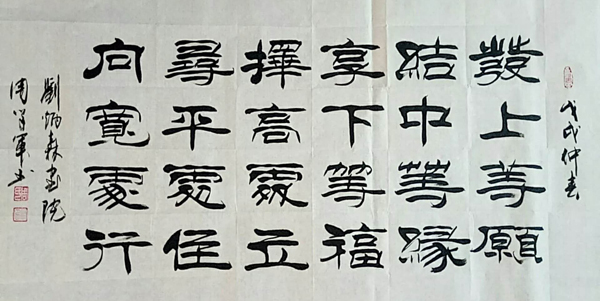 戊戌仲春
發上等願
結中等緣
享下等福
擇高處立
尋平處住
向寬處行
劉炳森院
周軍书